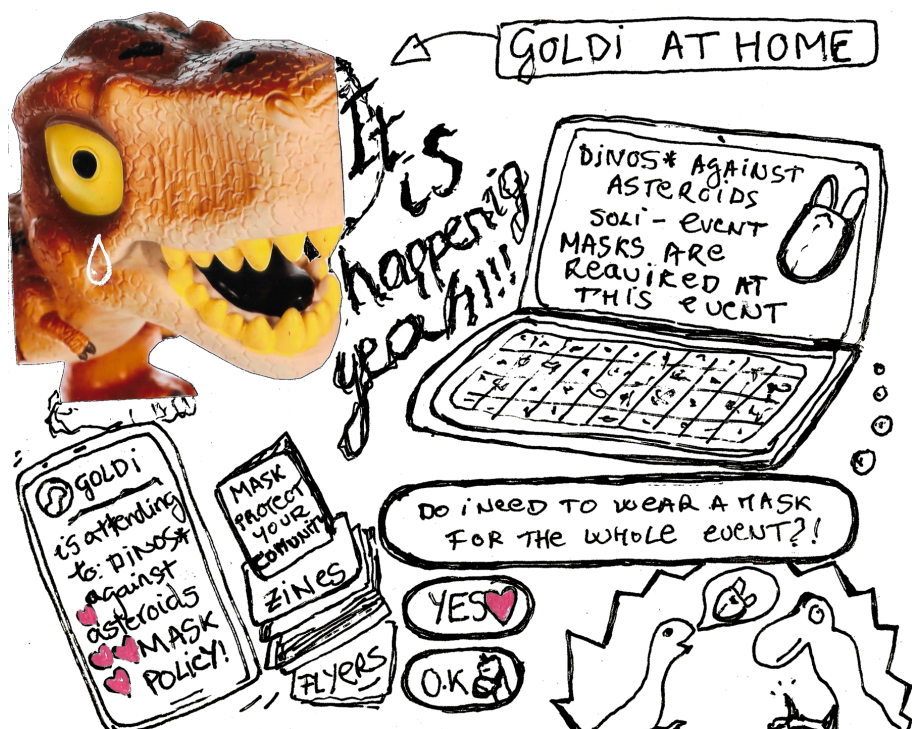 GOLDi AT HOME
It
is
happenig
yeah!!!
DiNOS* AGAiNST
ASTEROiDS
SOLi - EVENT
MASKS ARE
REQUIRED AT
THIS EVENT
GOLDi
is attending
to: DiNOS*
against
asteroids
MASK
POLiCY!
MASK
PROTECT
YOUR
COMUNITY
ZiNES
FLYERS
DO i NEED TO WEAR A MASK
FOR THE WHOLE EVENT?!
YES
O.K